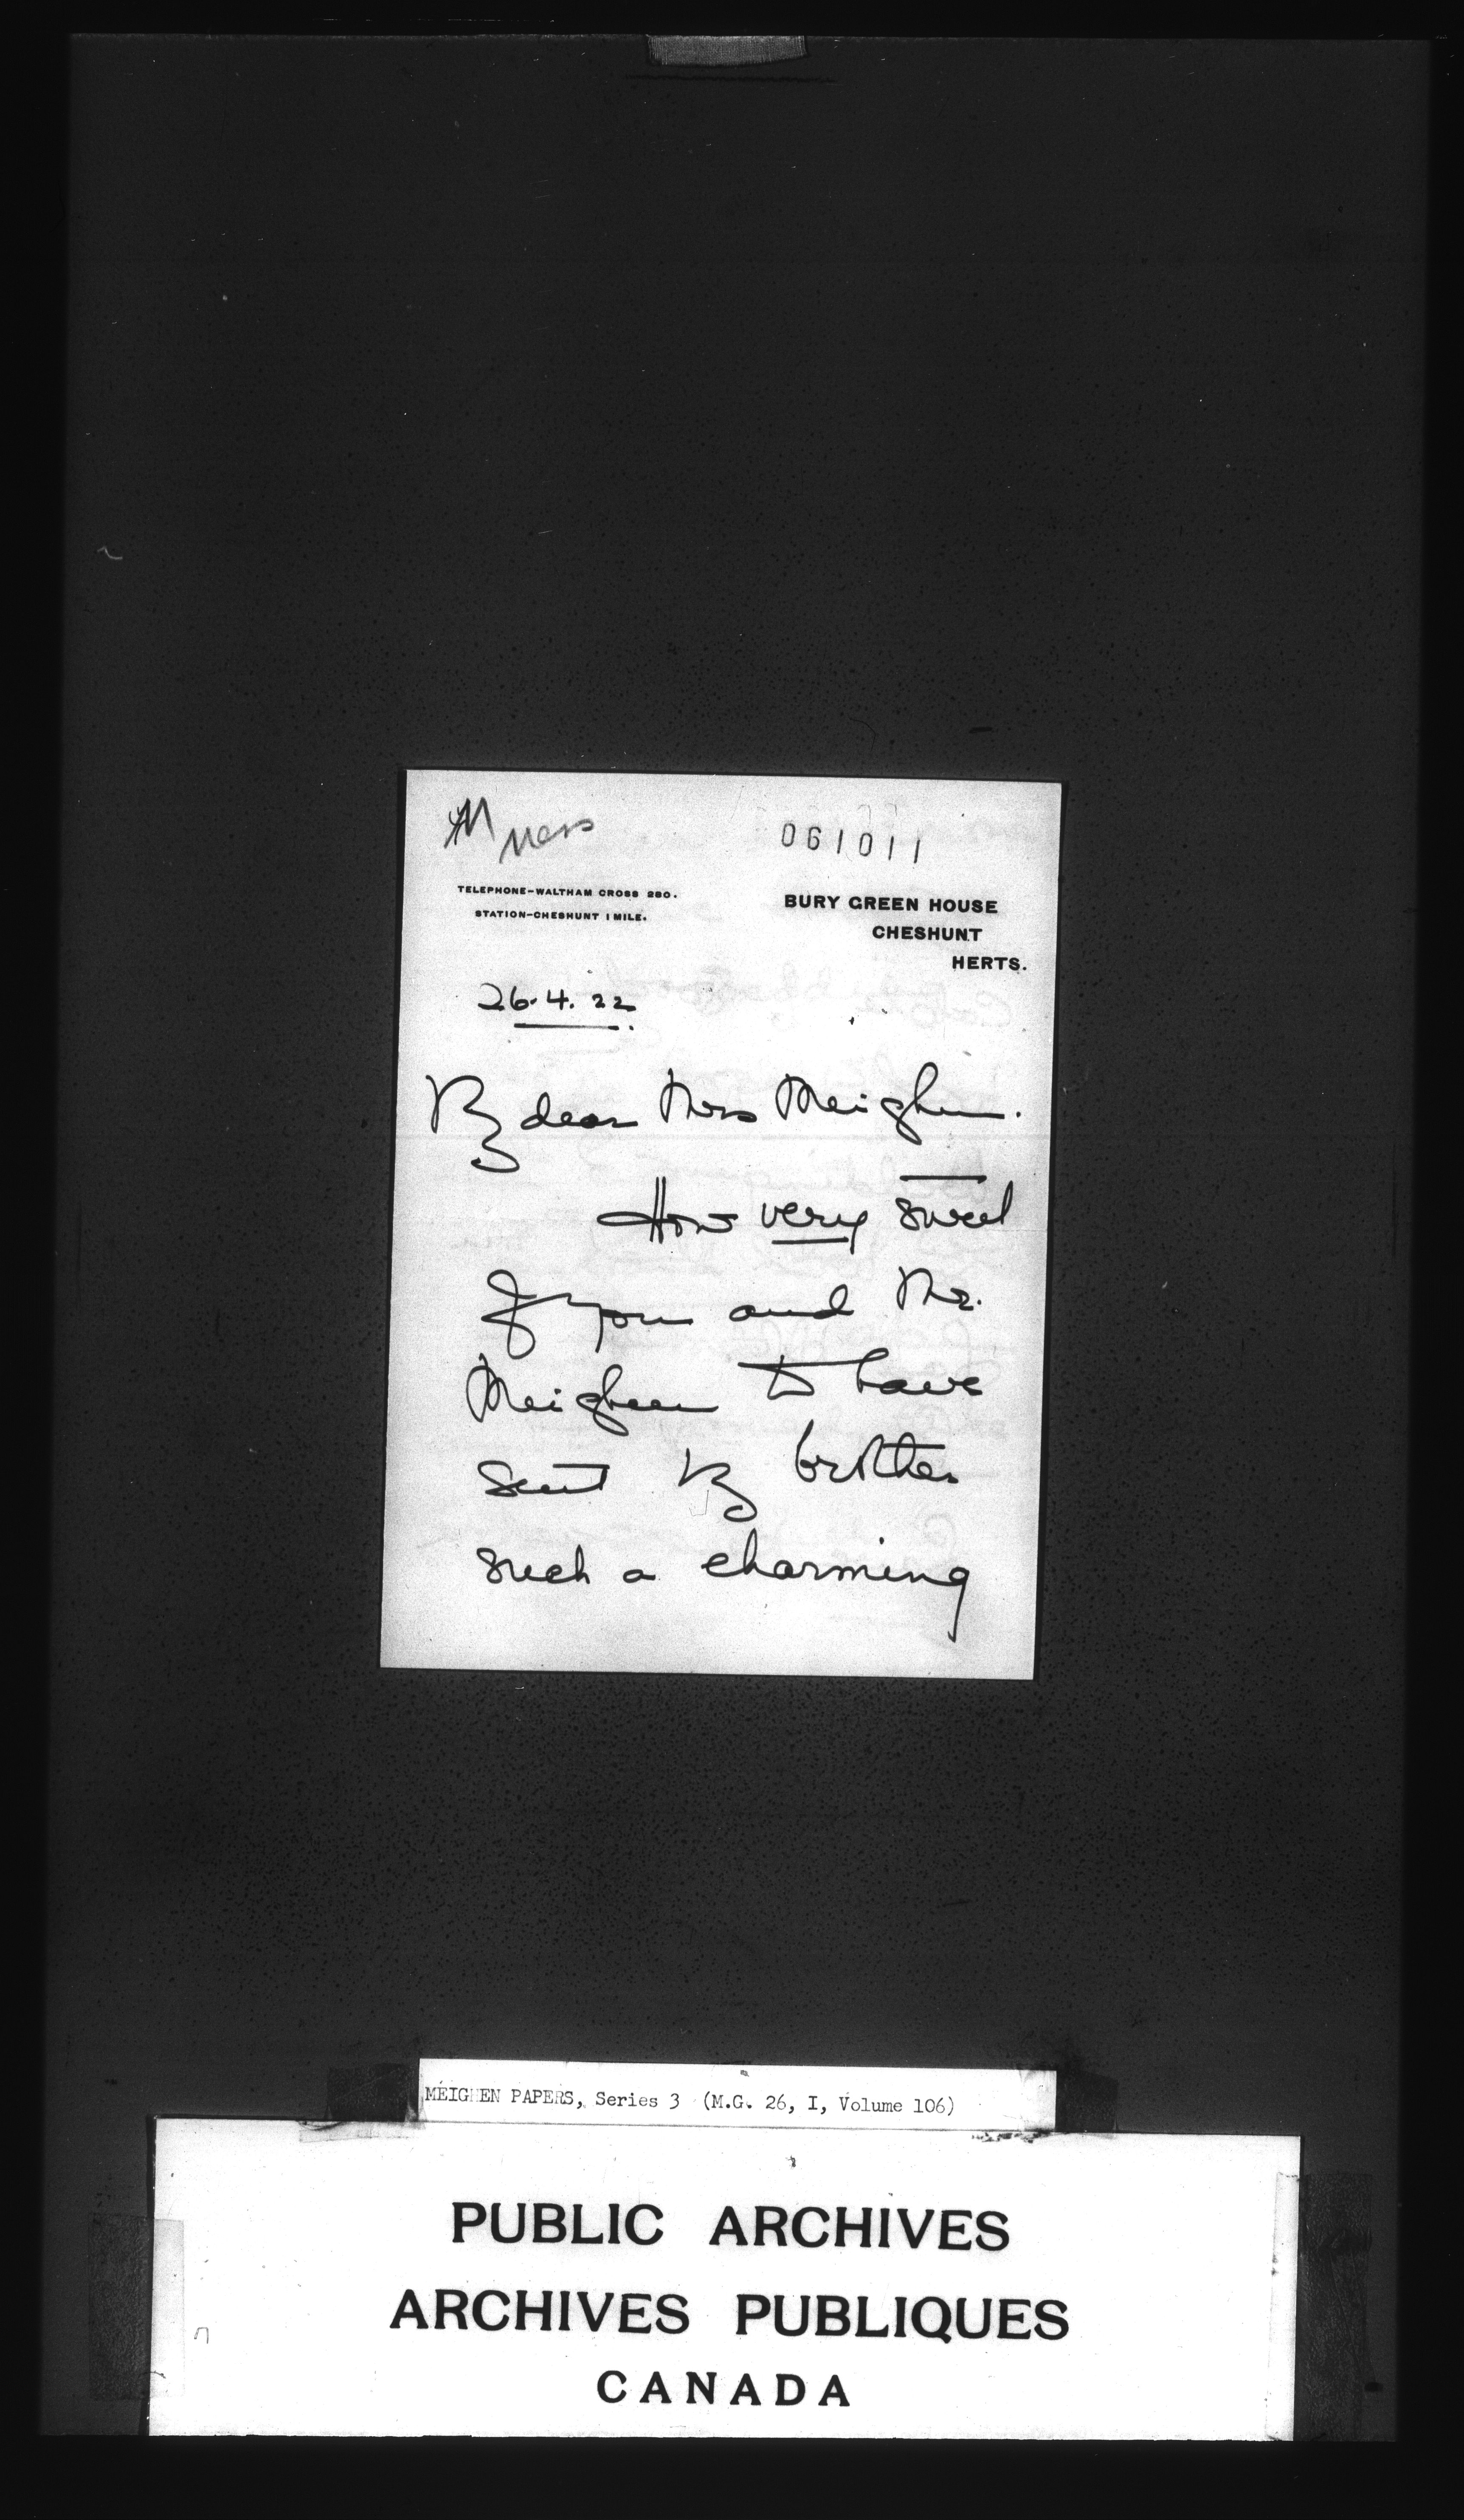 061011
TELEPHONE-WALTHAM CROSS 280.
STATION-CHESHUNT 1 MILE.
BURY GREEN HOUSE
CHESHUNT
HERTS.
26.4.22.
My dear Mrs Meighen.
How very sweet
of you and Mr.
Meighen to have
sent my brother
such a charming
MEIGHEN PAPERS, Series 3 (M.G. 26, I, Volume 106)
PUBLIC ARCHIVES
ARCHIVES PUBLIQUES
CANADA